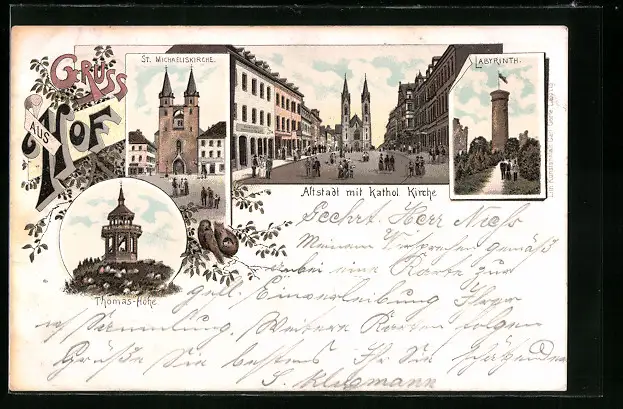 GRUSS
AUS
HOF
ST. MICHAELISKIRCHE.
LABYRINTH.
Altstadt mit Kathol. Kirche
Thomas-Höhe
Geehrt. Herr Niess
Meinem Versprechen gemäß
anbei eine Karte zur
gefl. Einverleibung Ihrer
Sammlung. Weitere Karten folgen
Grüße Sie bestens Ihr Sie schätzender
S. Klugmann